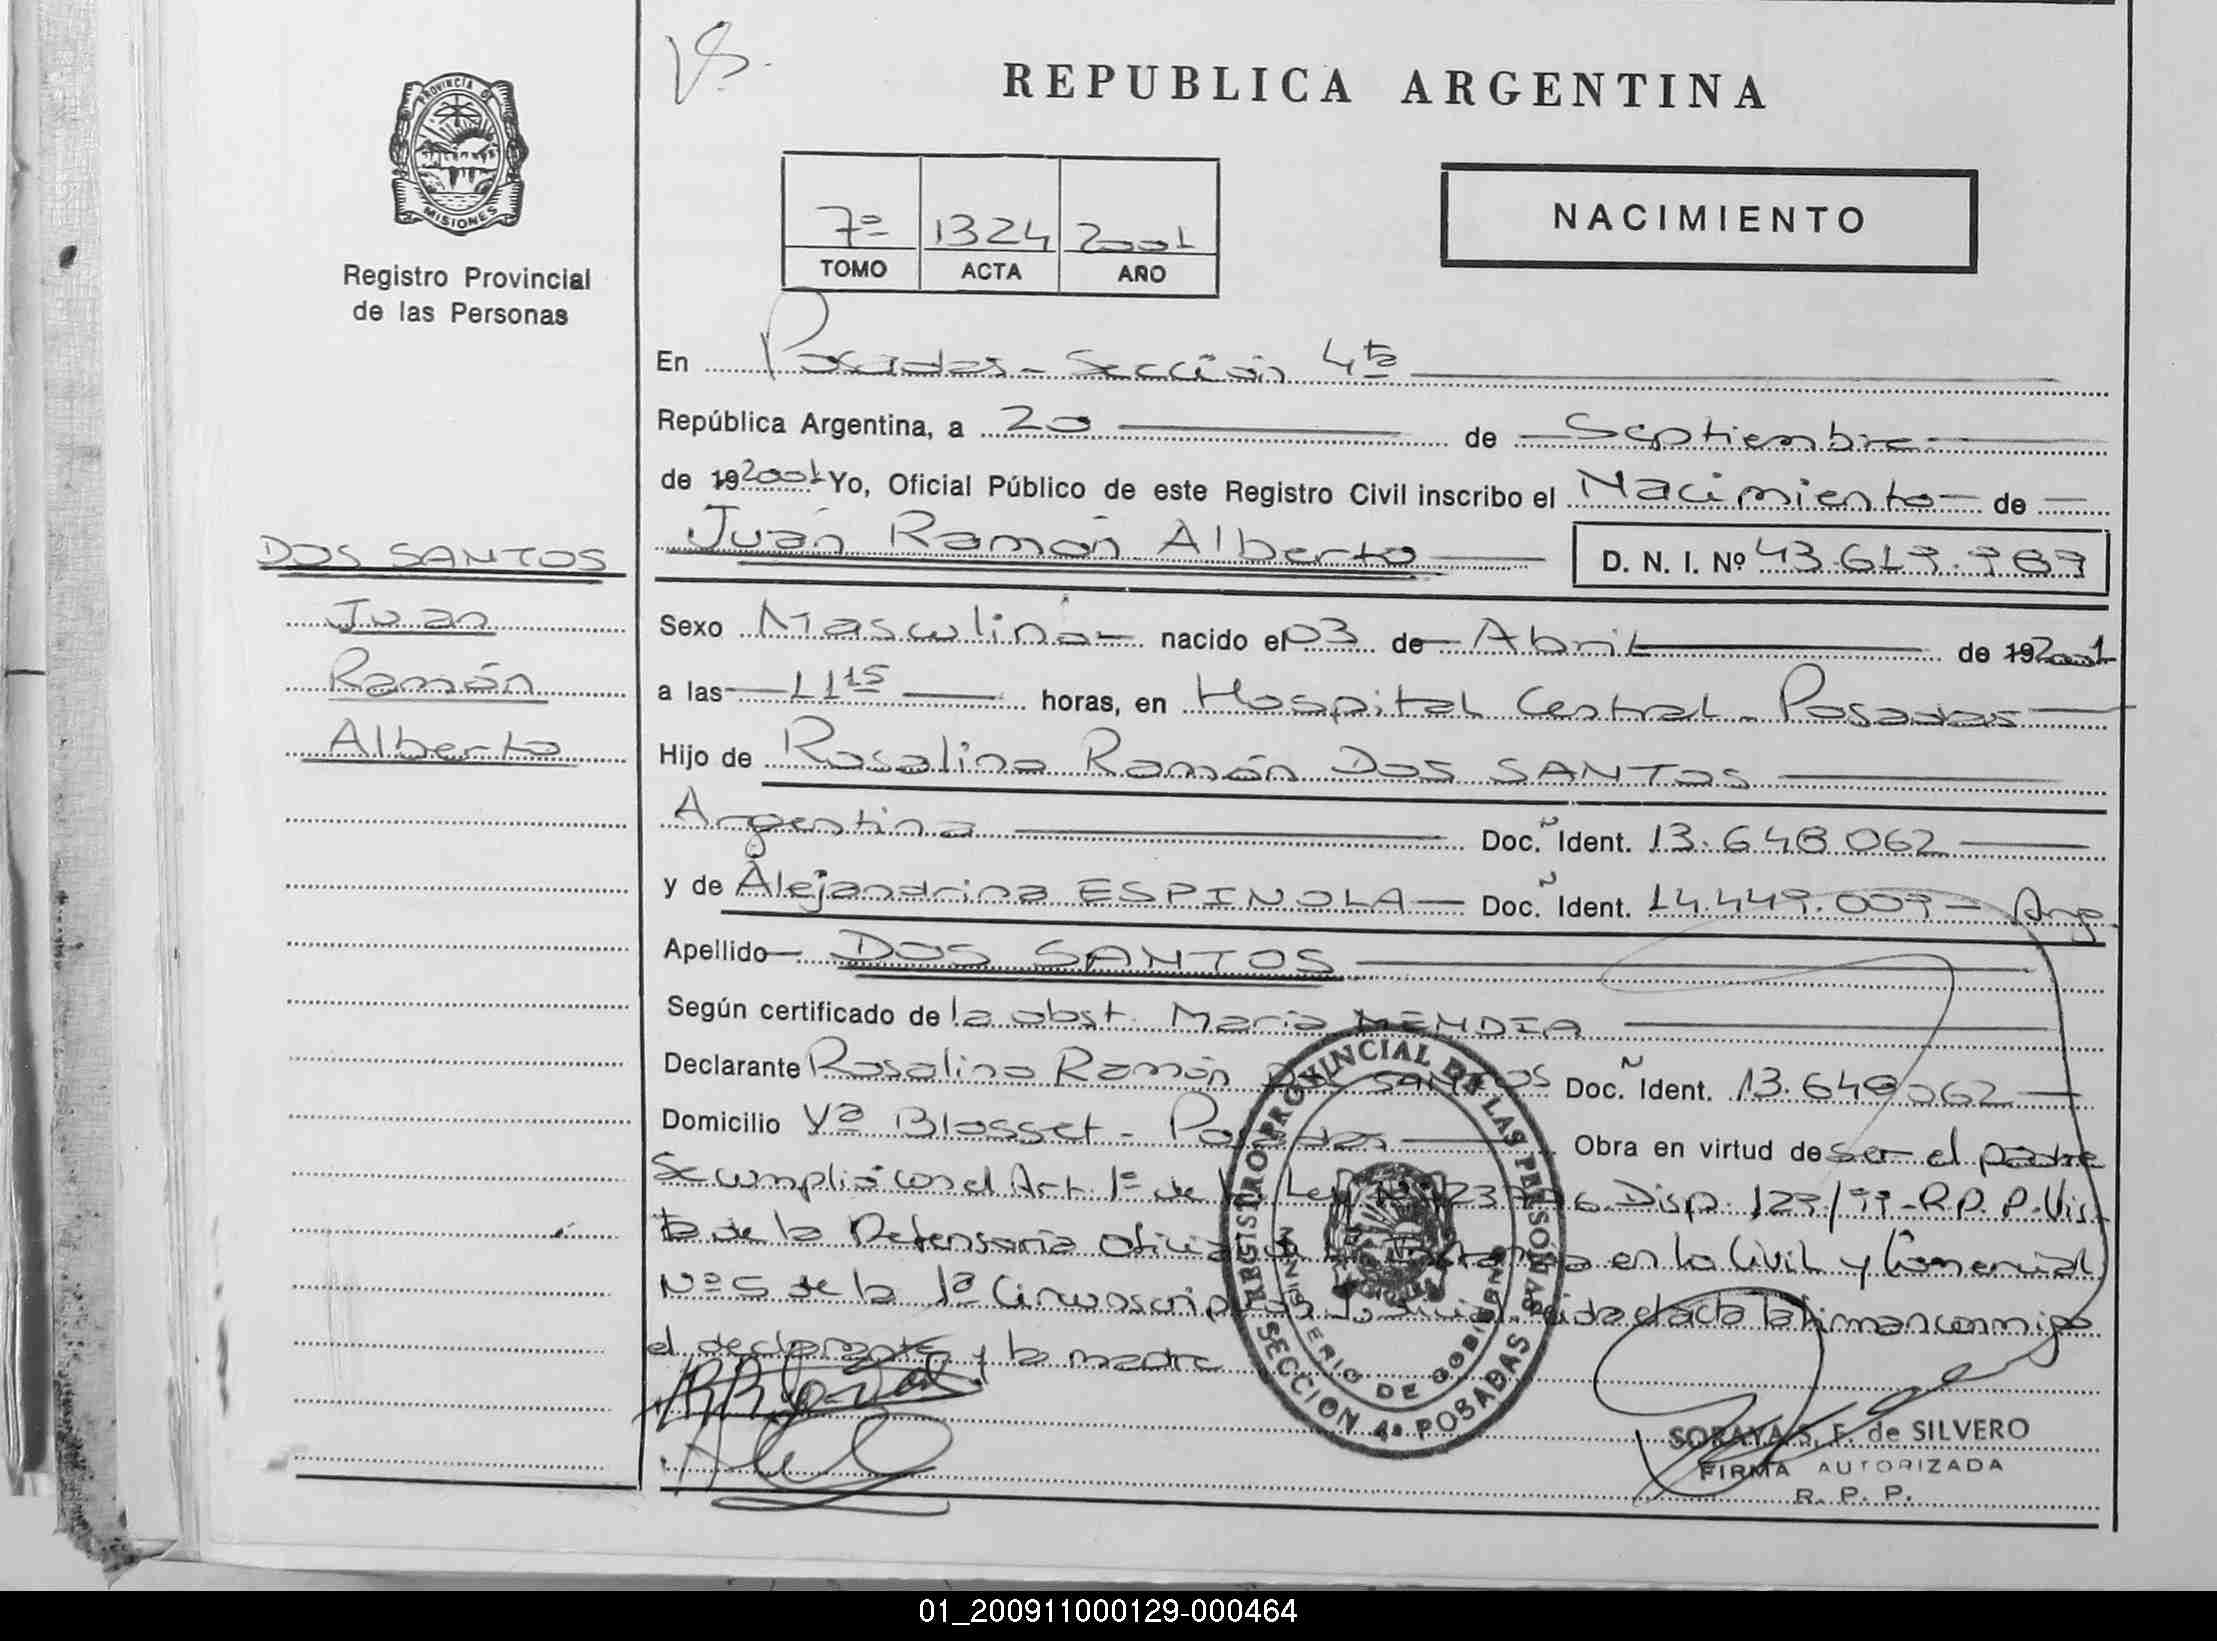 Vs.
REPUBLICA ARGENTINA
PROVINCIA DE
MISIONES
Registro Provincial
de las Personas
7º 1324 2001
TOMO ACTA AÑO
NACIMIENTO
En Posadas - Sección 4ta
República Argentina, a 20 de Septiembre
de 19 2001 Yo, Oficial Público de este Registro Civil inscribo el Nacimiento de
Juan Ramón Alberto D. N. I. Nº
DOS SANTOS
Juan
Ramón
Alberto
Sexo Masculino nacido el 03 de Abril de 19 2001
a las 11 15 horas, en Hospital Central - Posadas
Hijo de Rosalino Ramón Dos SANTos
Argentina Doc. Ident. 13.648.062
y de Alejandrina ESPINOLA Doc. Ident. 14.449.009 - Arg.
Apellido DOS SANTOS
Según certificado de la obst. María MENDIA
Declarante Rosalino Ramón Dos SANTOS Doc. Ident. 13.648062
Domicilio Vª Blosset - Posadas Obra en virtud de ser el padre
Se cumplió con el Art. 1º de la Ley Nº 23776. Disp. 129/99 - R.P.P. Vis-
ta de la Defensoria Oficial de 1ª Instancia en lo Civil y Comercial
Nº 5 de la 1ª Circunscripción Judicial. Leida el acta la firman conmigo
el declarante y la madre
REGISTRO PROVINCIAL DE LAS PERSONAS
MINISTERIO DE GOBIERNO
SECCION 4ª POSADAS
SORAYA S. F. de SILVERO
FIRMA AUTORIZADA
R. P. P.
01_200911000129-000464